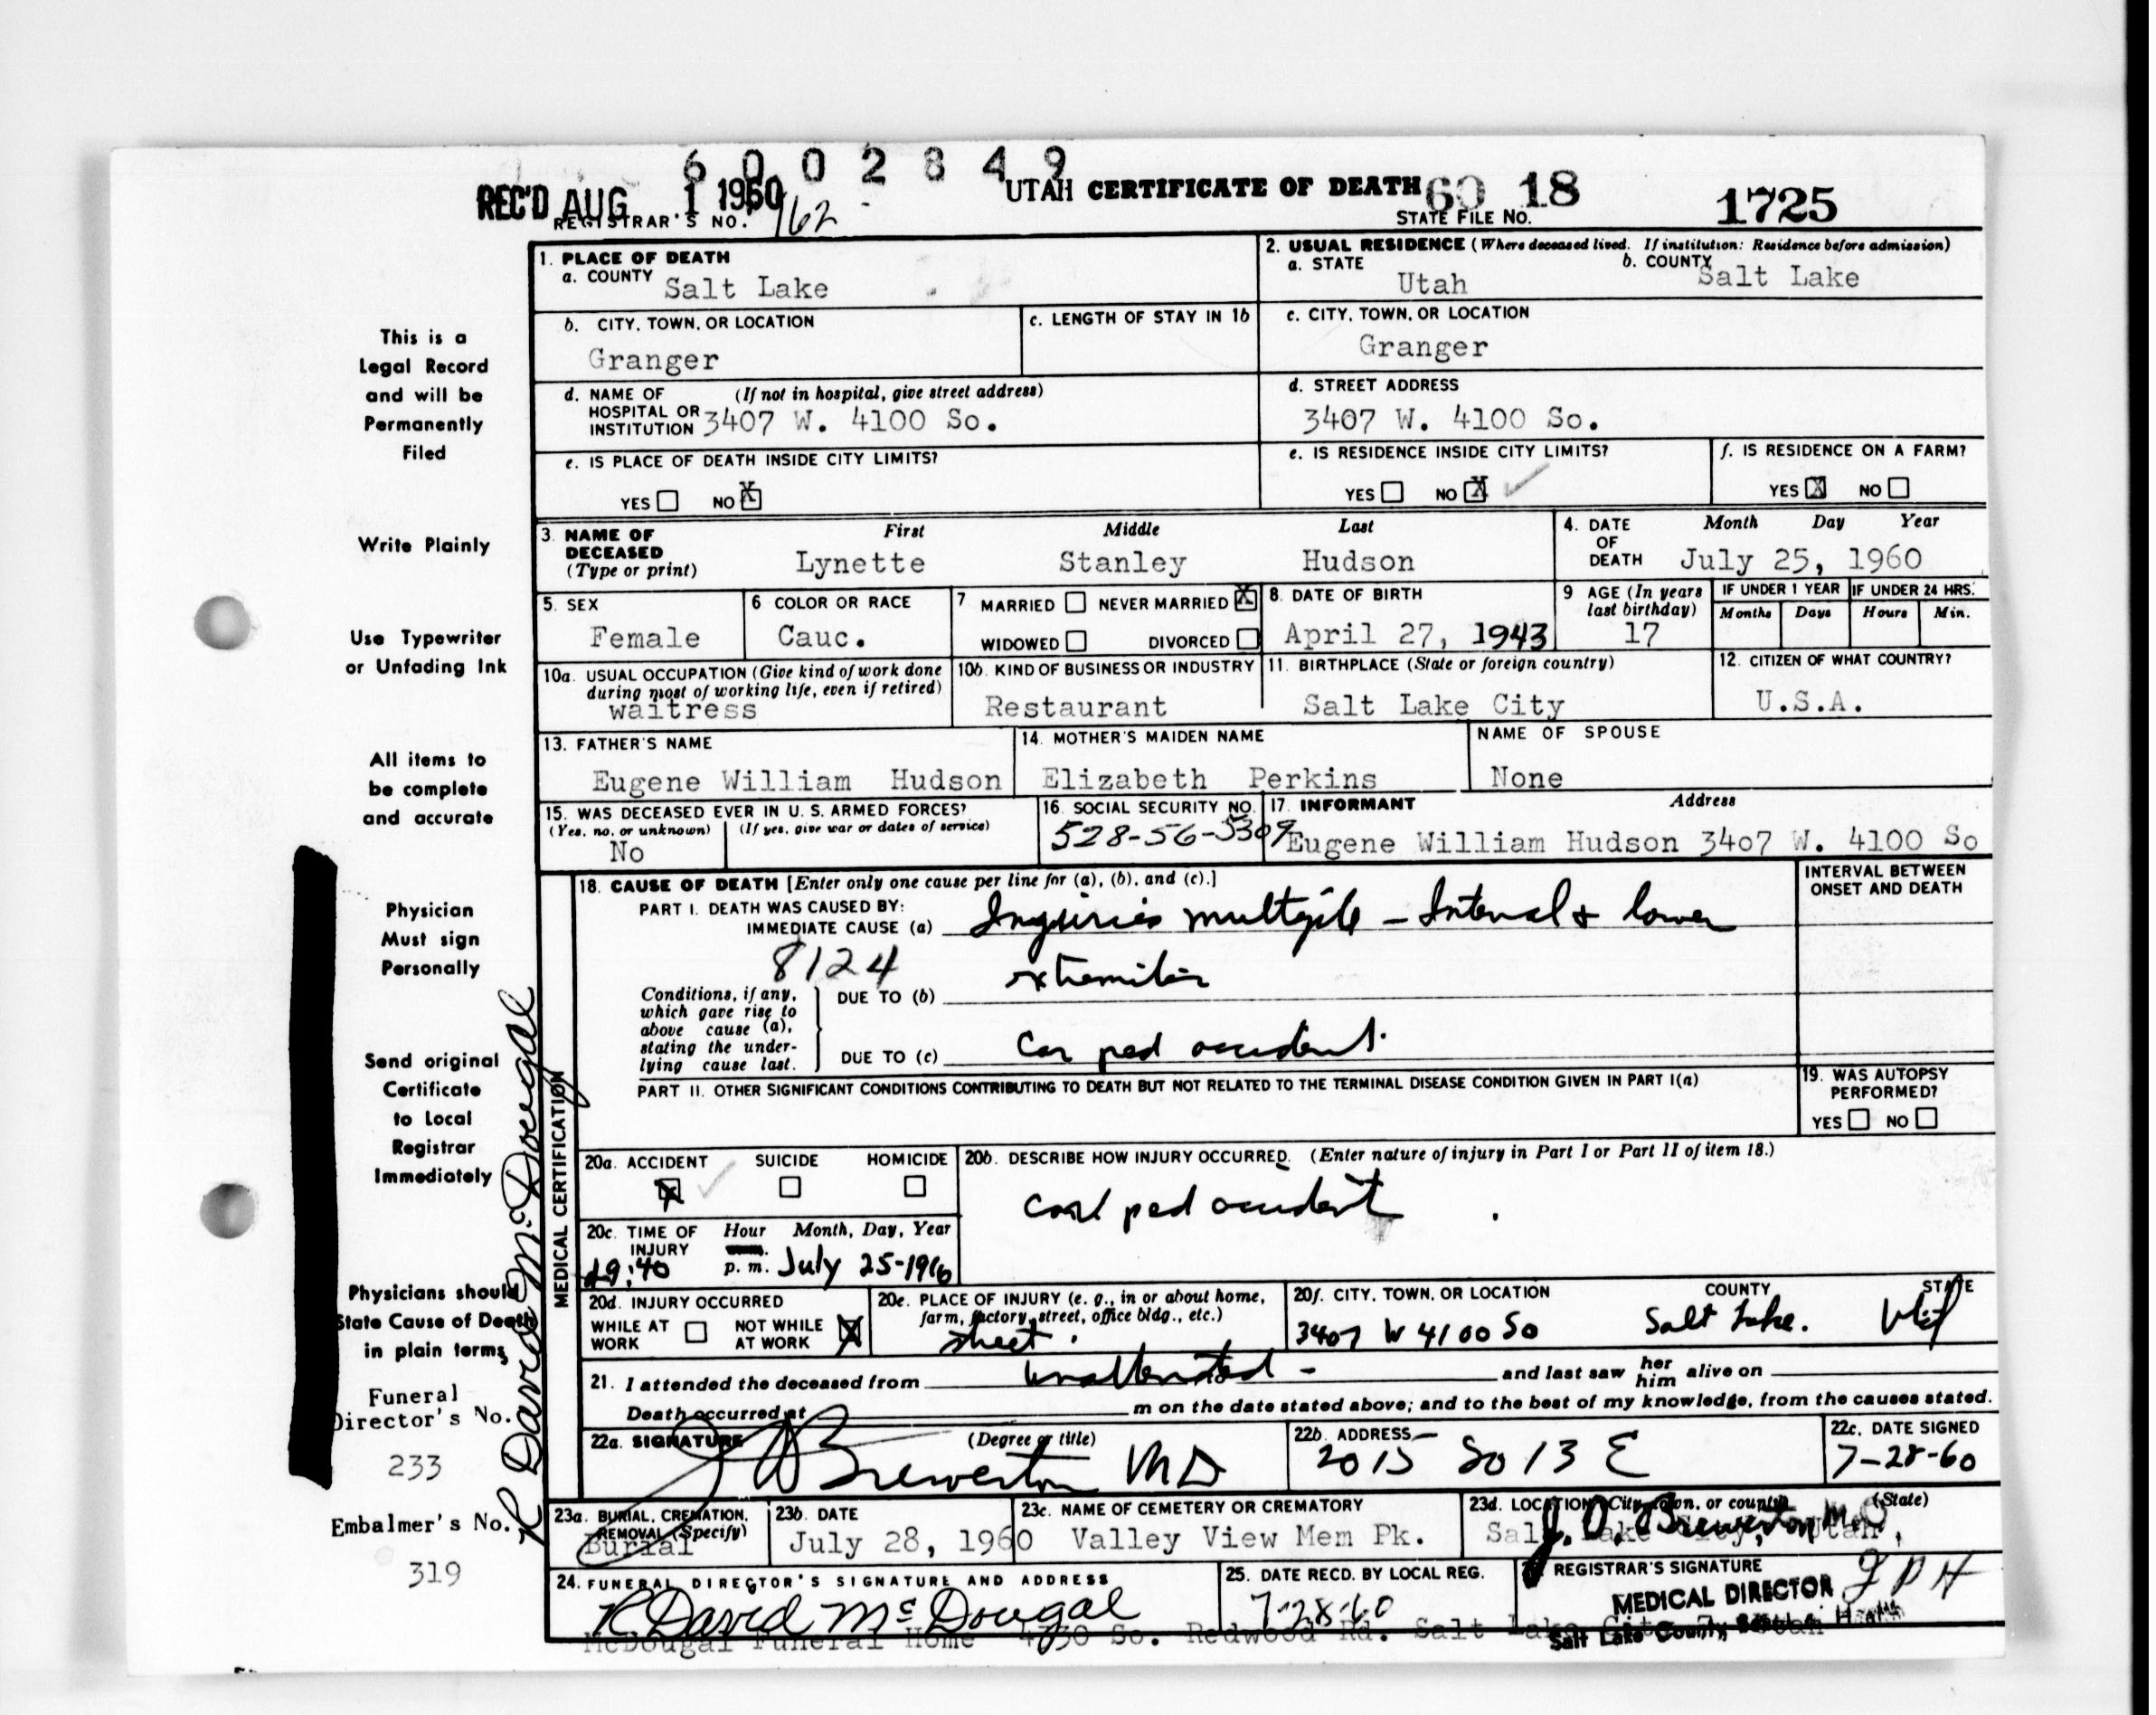 6 0 0 2 8 4 9
REC'D AUG 1 1960 UTAH CERTIFICATE OF DEATH 60 18 1725
REGISTRAR'S NO. 962 STATE FILE NO.
1. PLACE OF DEATH
a. COUNTY Salt Lake
2. USUAL RESIDENCE (Where deceased lived. If institution: Residence before admission)
a. STATE Utah b. COUNTY Salt Lake
b. CITY, TOWN, OR LOCATION Granger
c. LENGTH OF STAY IN 1b
c. CITY, TOWN, OR LOCATION Granger
d. NAME OF (If not in hospital, give street address)
HOSPITAL OR
INSTITUTION 3407 W. 4100 So.
d. STREET ADDRESS
3407 W. 4100 So.
e. IS PLACE OF DEATH INSIDE CITY LIMITS?
YES NO X
e. IS RESIDENCE INSIDE CITY LIMITS?
YES NO X
f. IS RESIDENCE ON A FARM?
YES X NO
3. NAME OF DECEASED (Type or print)
First Middle Last
Lynette Stanley Hudson
4. DATE OF DEATH Month Day Year
July 25, 1960
5. SEX
Female
6 COLOR OR RACE
Cauc.
7 MARRIED NEVER MARRIED X
WIDOWED DIVORCED
8. DATE OF BIRTH
April 27, 1943
9 AGE (In years last birthday)
17
IF UNDER 1 YEAR IF UNDER 24 HRS.
Months Days Hours Min.
10a. USUAL OCCUPATION (Give kind of work done
during most of working life, even if retired)
waitress
10b. KIND OF BUSINESS OR INDUSTRY
Restaurant
11. BIRTHPLACE (State or foreign country)
Salt Lake City
12. CITIZEN OF WHAT COUNTRY?
U.S.A.
13. FATHER'S NAME
Eugene William Hudson
14. MOTHER'S MAIDEN NAME
Elizabeth Perkins
NAME OF SPOUSE
None
15. WAS DECEASED EVER IN U. S. ARMED FORCES?
(Yes, no, or unknown) (If yes, give war or dates of service)
No
16. SOCIAL SECURITY NO.
528-56-5309
17. INFORMANT Address
Eugene William Hudson 3407 W. 4100 So
18. CAUSE OF DEATH [Enter only one cause per line for (a), (b), and (c).]
INTERVAL BETWEEN
ONSET AND DEATH
PART I. DEATH WAS CAUSED BY:
IMMEDIATE CAUSE (a) Injuries multiple - Internal & lower
8124 extremities
Conditions, if any,
which gave rise to
above cause (a),
stating the under-
lying cause last.
DUE TO (b)
DUE TO (c) Car ped accident.
PART II. OTHER SIGNIFICANT CONDITIONS CONTRIBUTING TO DEATH BUT NOT RELATED TO THE TERMINAL DISEASE CONDITION GIVEN IN PART I(a)
19. WAS AUTOPSY
PERFORMED?
YES NO
20a. ACCIDENT SUICIDE HOMICIDE
X
20b. DESCRIBE HOW INJURY OCCURRED. (Enter nature of injury in Part I or Part II of item 18.)
ped accident
20c. TIME OF INJURY Hour Month, Day, Year
9:40 p. m. July 25-1960
20d. INJURY OCCURRED
WHILE AT WORK NOT WHILE AT WORK X
20e. PLACE OF INJURY (e. g., in or about home,
farm, factory, street, office bldg., etc.)
street
20f. CITY, TOWN, OR LOCATION COUNTY STATE
3407 W 4100 So Salt Lake.
21. I attended the deceased from unattended - and last saw her him alive on
Death occurred at m on the date stated above; and to the best of my knowledge, from the causes stated.
22a. SIGNATURE (Degree or title)
J D Brewerton MD
22b. ADDRESS
2015 So 13 E
22c. DATE SIGNED
7-28-60
23a. BURIAL, CREMATION,
REMOVAL (Specify)
Burial
23b. DATE
July 28, 1960
23c. NAME OF CEMETERY OR CREMATORY
Valley View Mem Pk.
23d. LOCATION (City, town, or county) (State)
Salt Lake City, Utah,
J. D. Brewerton M.D
24. FUNERAL DIRECTOR'S SIGNATURE AND ADDRESS
R David McDougal
McDougal Funeral Home 4330 So. Redwood Rd. Salt Lake City 7, Utah
25. DATE RECD. BY LOCAL REG.
7-28-60
REGISTRAR'S SIGNATURE
MEDICAL DIRECTOR J P H
Salt Lake County Health
MEDICAL CERTIFICATION
R David McDougal
This is a
Legal Record
and will be
Permanently
Filed
Write Plainly
Use Typewriter
or Unfading Ink
All items to
be complete
and accurate
Physician
Must sign
Personally
Send original
Certificate
to Local
Registrar
Immediately
Physicians should
State Cause of Death
in plain terms
Funeral
Director's No.
233
Embalmer's No.
319